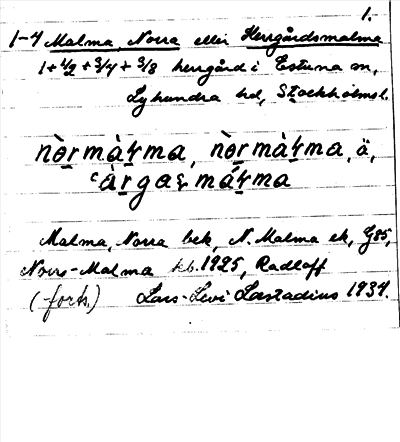 1.
1-4 Malma, Norra eller Herrgårdsmalma
1+1/2+3/4+3/8 herrgård i Estuna sn,
Lyhundra hd, Stockholms l.
Malma, Norra bek, N. Malma ek, G85,
Norr-Malma kb. 1925, Radloff
(forts.) Lars-Levi Læstadius 1934.